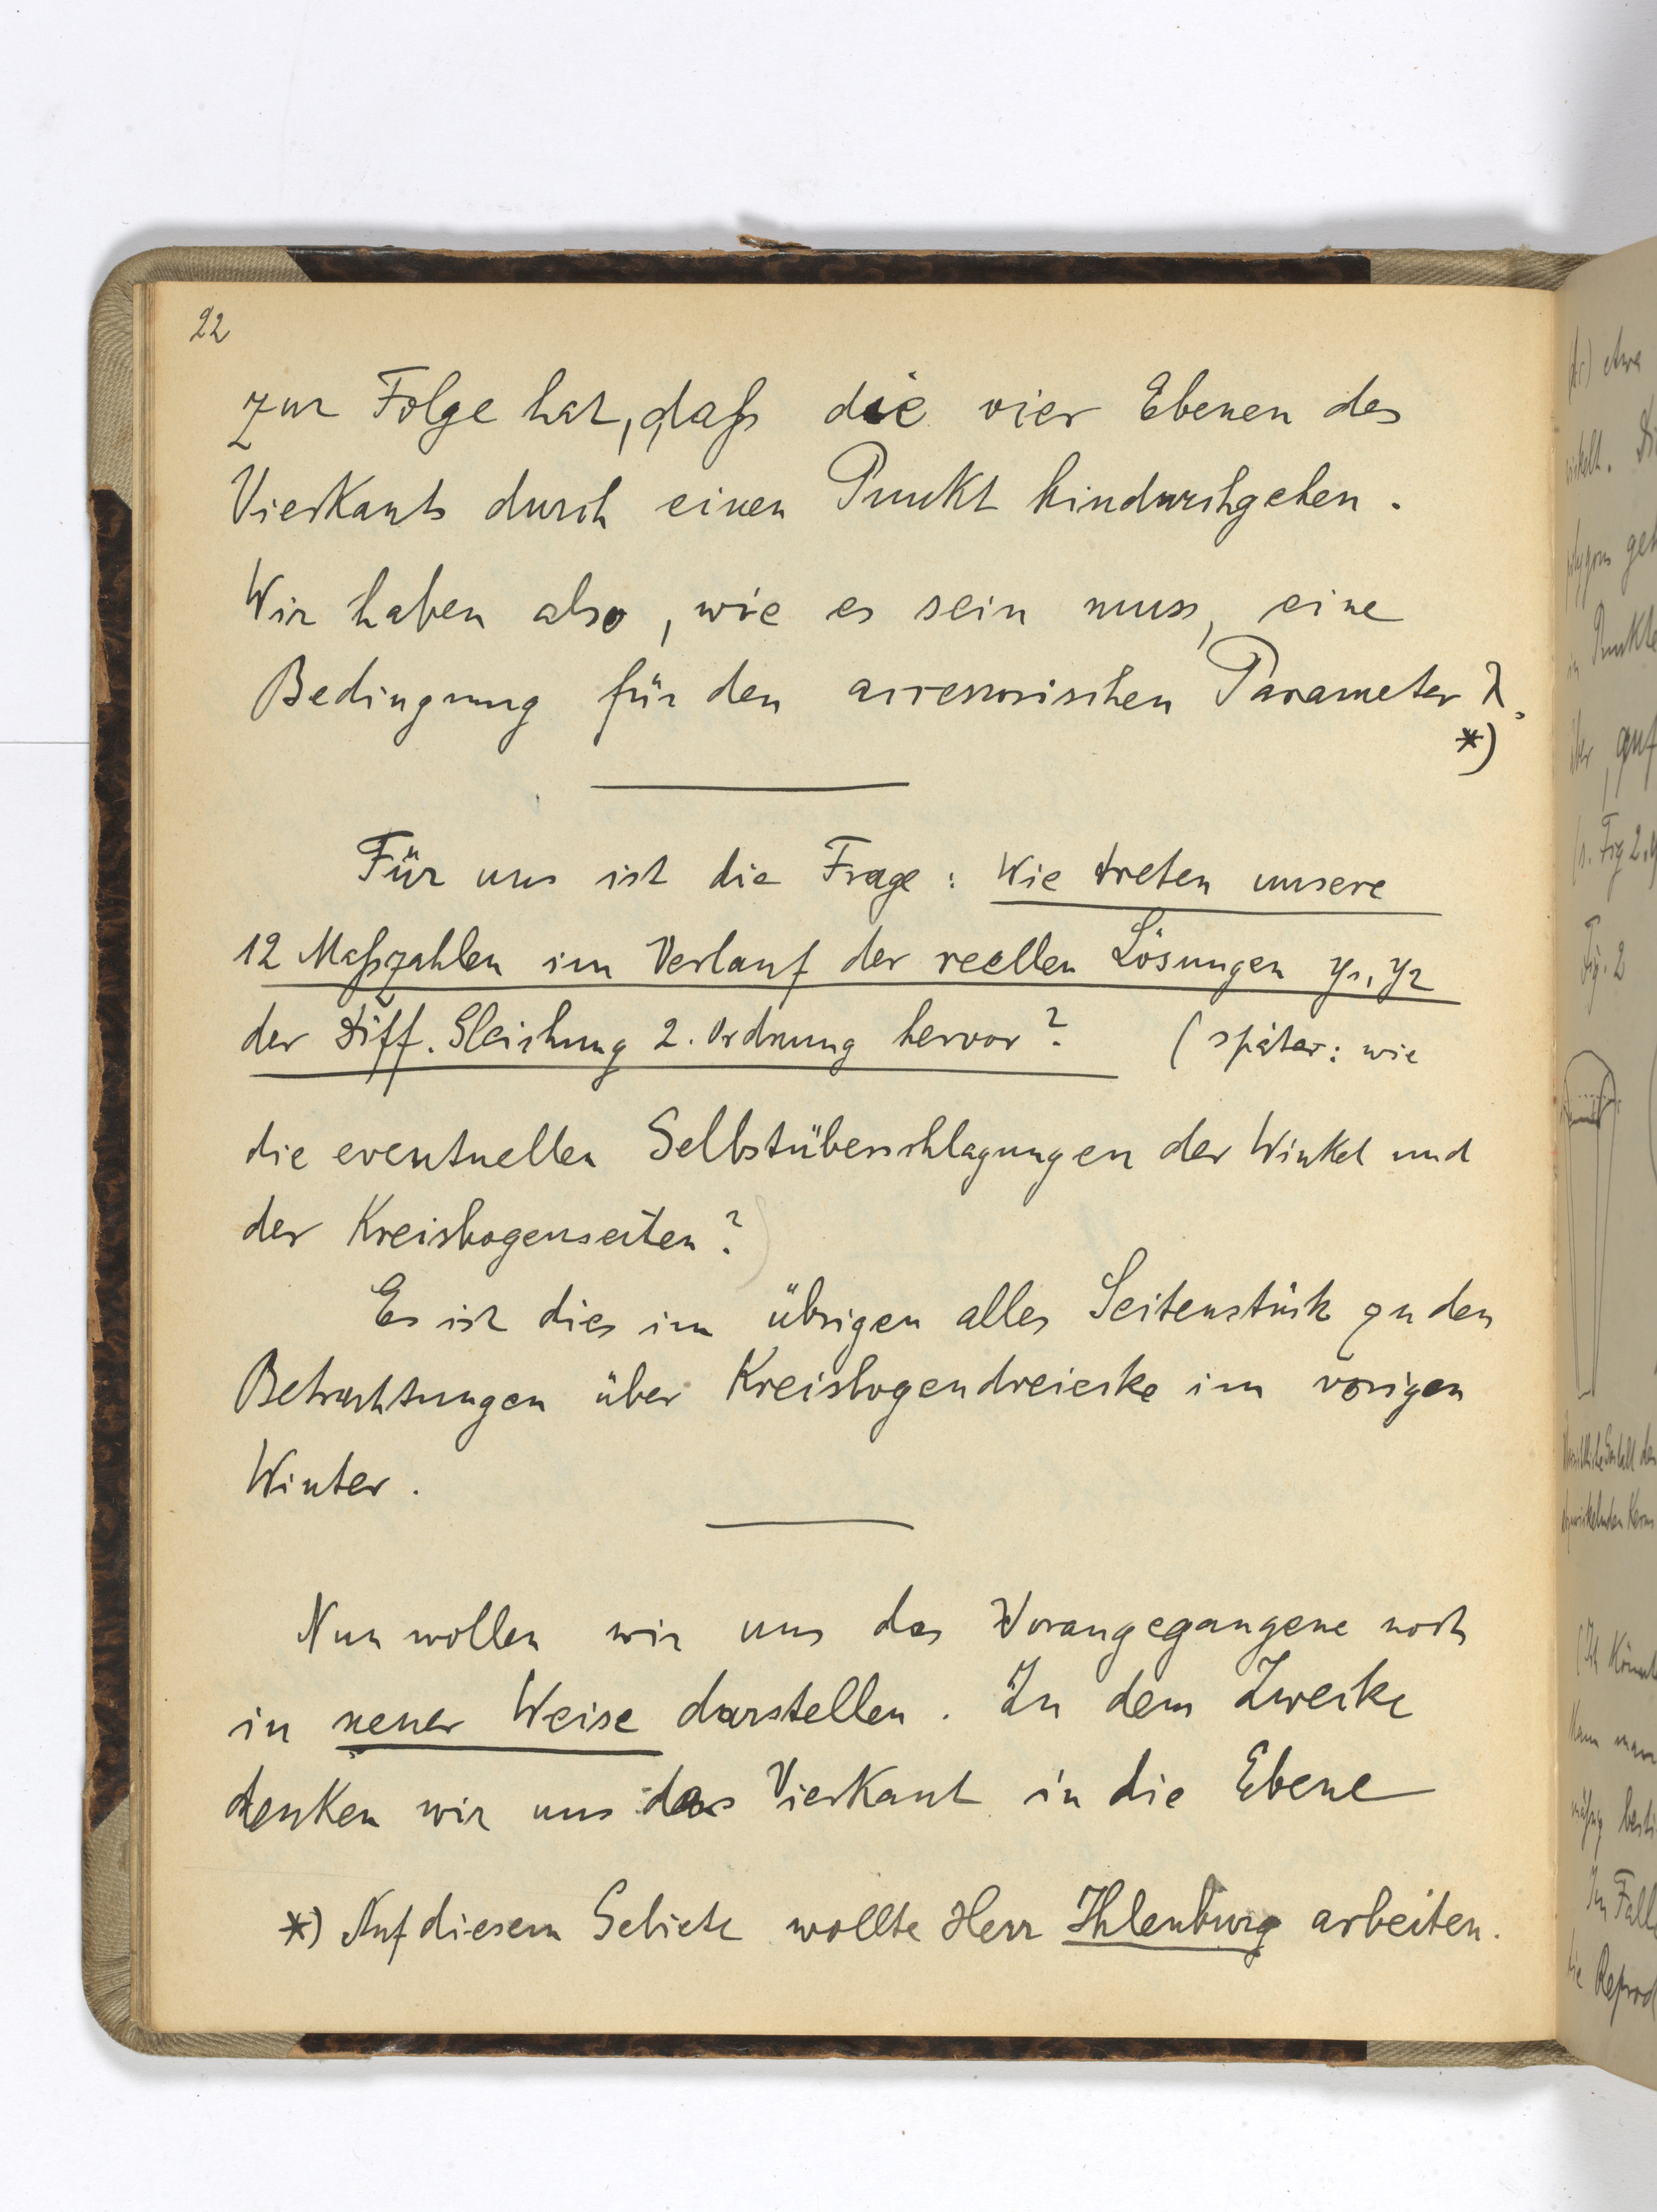 22
zur Folge hat, daß die vier Ebenen des
Vierkants durch einen Punkt hindurchgehen.
Wir haben also, wie es sein muss, eine
Bedingung für den accessorischen Parameter λ.
*)
Für uns ist die Frage: Wie treten unsere
12 Maßzahlen im Verlauf der reellen Lösungen y1, y2
der Diff. Gleichung 2. Ordnung hervor? (später: wie
die eventuellen Selbstüberschlagungen der Winkel und
der Kreisbogenseiten?)
Es ist dies im übrigen alles Seitenstück zu den
Betrachtungen über Kreisbogendreiecke im vorigen
Winter.
Nun wollen wir uns das Vorangegangene noch
in neuer Weise darstellen. Zu dem Zwecke
denken wir uns das Vierkant in die Ebene
*) Auf diesem Gebiete wollte Herr Ihlenburg arbeiten.
etwa
Punkte
auf
(s. Fig 2.
Fig. 2
Kann man
Im Fall
die Reprod